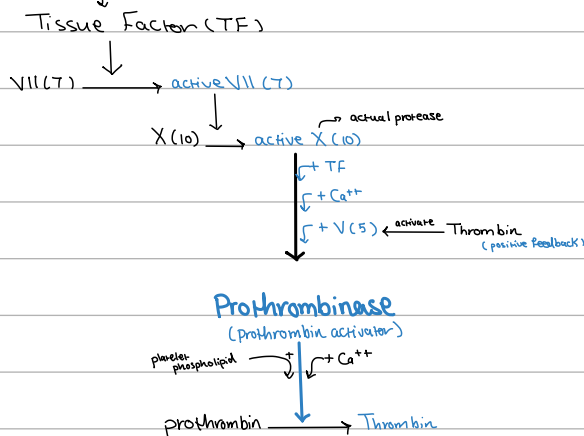 Tissue Factor (TF)
VII (7) active VII (7)
actual protease
X (10) active X (10)
+ TF
+ Ca++
+ V (5) activate Thrombin
(positive feedback)
Prothrombinase
(prothrombin activator)
platelet phospholipid + + Ca++
prothrombin Thrombin